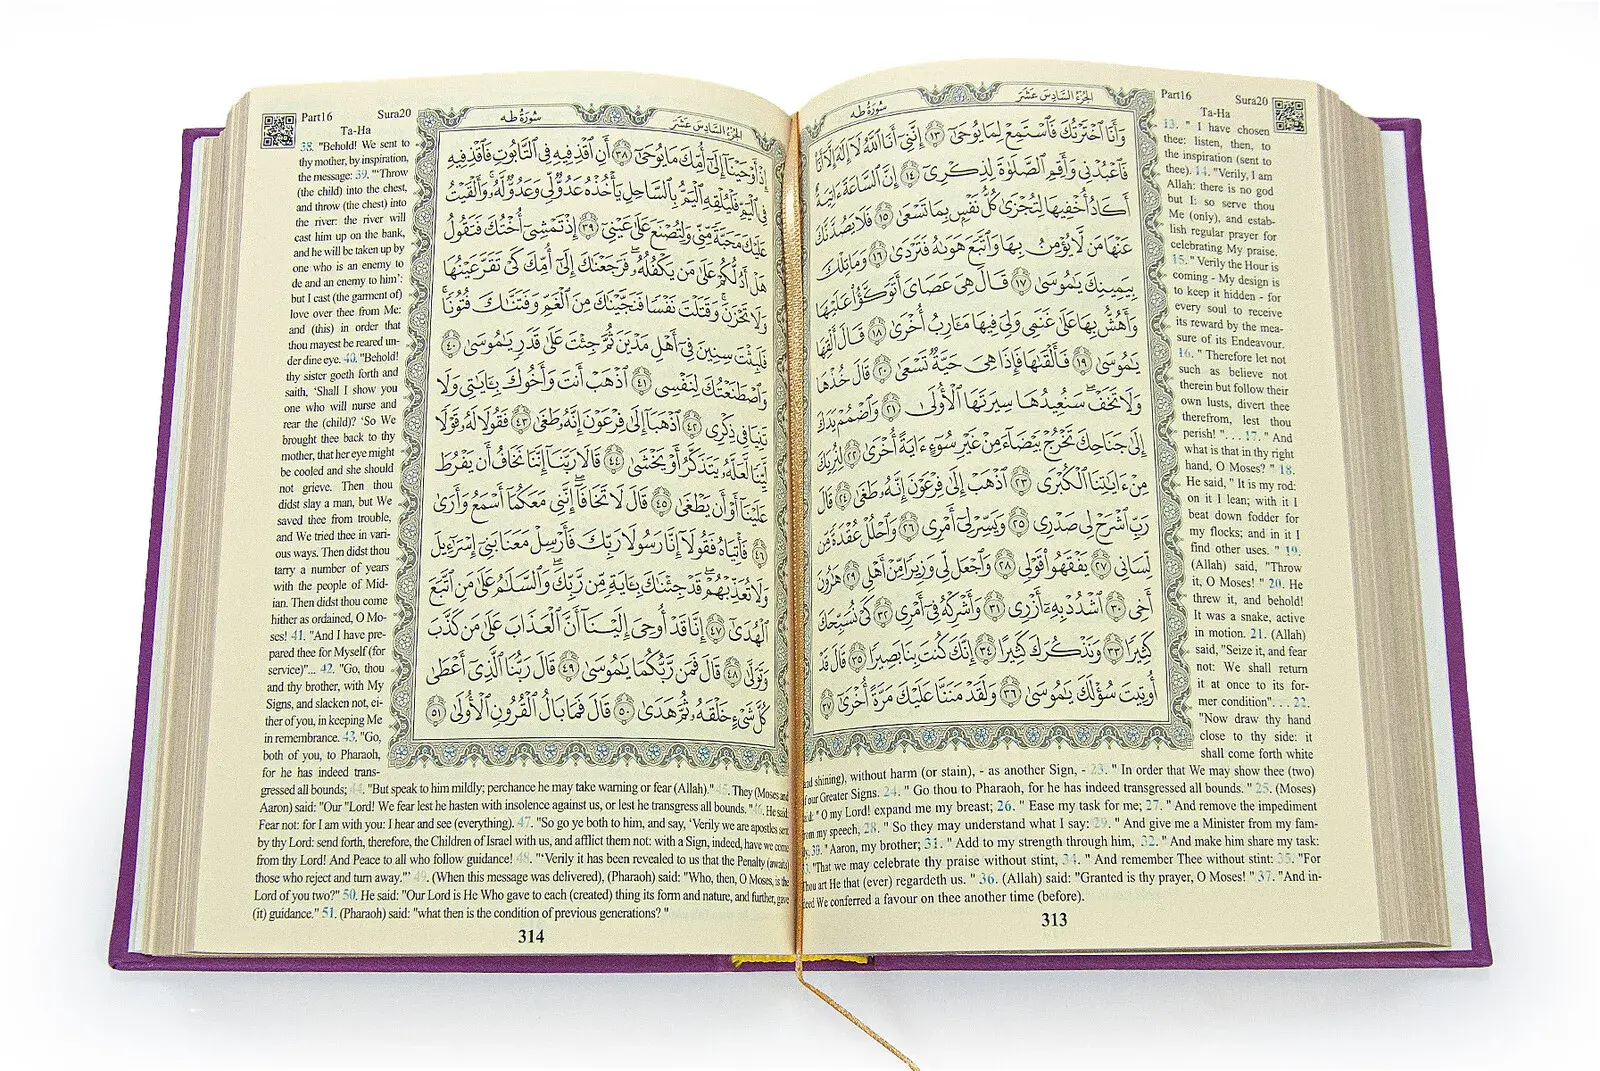 Part16 Sura20
Ta-Ha
الجزء السادس عشر
سورة طه
وَأَنَا ٱخْتَرْتُكَ فَٱسْتَمِعْ لِمَا يُوحَىٰٓ ١٣ إِنَّنِىٓ أَنَا ٱللَّهُ لَآ إِلَٰهَ إِلَّآ أَنَا۠
فَٱعْبُدْنِى وَأَقِمِ ٱلصَّلَوٰةَ لِذِكْرِىٓ ١٤ إِنَّ ٱلسَّاعَةَ ءَاتِيَةٌ
أَكَادُ أُخْفِيهَا لِتُجْزَىٰ كُلُّ نَفْسٍۭ بِمَا تَسْعَىٰ ١٥ فَلَا يَصُدَّنَّكَ
عَنْهَا مَن لَّا يُؤْمِنُ بِهَا وَٱتَّبَعَ هَوَىٰهُ فَتَرْدَىٰ ١٦ وَمَا تِلْكَ
بِيَمِينِكَ يَٰمُوسَىٰ ١٧ قَالَ هِىَ عَصَاىَ أَتَوَكَّؤُا۟ عَلَيْهَا
وَأَهُشُّ بِهَا عَلَىٰ غَنَمِى وَلِىَ فِيهَا مَـَٔارِبُ أُخْرَىٰ ١٨ قَالَ أَلْقِهَا
يَٰمُوسَىٰ ١٩ فَأَلْقَىٰهَا فَإِذَا هِىَ حَيَّةٌ تَسْعَىٰ ٢٠ قَالَ خُذْهَا
وَلَا تَخَفْ سَنُعِيدُهَا سِيرَتَهَا ٱلْأُولَىٰ ٢١ وَٱضْمُمْ يَدَكَ
إِلَىٰ جَنَاحِكَ تَخْرُجْ بَيْضَآءَ مِنْ غَيْرِ سُوٓءٍ ءَايَةً أُخْرَىٰ ٢٢ لِنُرِيَكَ
مِنْ ءَايَٰتِنَا ٱلْكُبْرَى ٢٣ ٱذْهَبْ إِلَىٰ فِرْعَوْنَ إِنَّهُۥ طَغَىٰ ٢٤ قَالَ
رَبِّ ٱشْرَحْ لِى صَدْرِى ٢٥ وَيَسِّرْ لِىٓ أَمْرِى ٢٦ وَٱحْلُلْ عُقْدَةً مِّن
لِّسَانِى ٢٧ يَفْقَهُوا۟ قَوْلِى ٢٨ وَٱجْعَل لِّى وَزِيرًا مِّنْ أَهْلِى ٢٩ هَٰرُونَ
أَخِى ٣٠ ٱشْدُدْ بِهِۦٓ أَزْرِى ٣١ وَأَشْرِكْهُ فِىٓ أَمْرِى ٣٢ كَىْ نُسَبِّحَكَ
كَثِيرًا ٣٣ وَنَذْكُرَكَ كَثِيرًا ٣٤ إِنَّكَ كُنتَ بِنَا بَصِيرًا ٣٥ قَالَ قَدْ
أُوتِيتَ سُؤْلَكَ يَٰمُوسَىٰ ٣٦ وَلَقَدْ مَنَنَّا عَلَيْكَ مَرَّةً أُخْرَىٰٓ ٣٧
13. " I have chosen
thee: listen, then, to
the inspiration (sent to
thee). 14. "Verily, I am
Allah: there is no god
but I: so serve thou
Me (only), and estab-
lish regular prayer for
celebrating My praise.
15. " Verily the Hour is
coming - My design is
to keep it hidden - for
every soul to receive
its reward by the mea-
sure of its Endeavour.
16. " Therefore let not
such as believe not
therein but follow their
own lusts, divert thee
therefrom, lest thou
perish! ". . . 17. " And
what is that in thy right
hand, O Moses? " 18.
He said, " It is my rod:
on it I lean; with it I
beat down fodder for
my flocks; and in it I
find other uses. " 19.
(Allah) said, "Throw
it, O Moses! " 20. He
threw it, and behold!
It was a snake, active
in motion. 21. (Allah)
said, "Seize it, and fear
not: We shall return
it at once to its for-
mer condition". . . 22.
"Now draw thy hand
close to thy side: it
shall come forth white
and shining), without harm (or stain), - as another Sign, - 23. " In order that We may show thee (two)
of our Greater Signs. 24. " Go thou to Pharaoh, for he has indeed transgressed all bounds. " 25. (Moses)
" O my Lord! expand me my breast; 26. " Ease my task for me; 27. " And remove the impediment
from my speech, 28. " So they may understand what I say: 29. " And give me a Minister from my fam-
30. " Aaron, my brother; 31. " Add to my strength through him, 32. " And make him share my task:
"That we may celebrate thy praise without stint, 34. " And remember Thee without stint: 35. "For
Thou art He that (ever) regardeth us. " 36. (Allah) said: "Granted is thy prayer, O Moses! " 37. "And in-
deed We conferred a favour on thee another time (before).
313
Part16 Sura20
Ta-Ha
الجزء السادس عشر
سورة طه
إِذْ أَوْحَيْنَآ إِلَىٰٓ أُمِّكَ مَا يُوحَىٰٓ ٣٨ أَنِ ٱقْذِفِيهِ فِى ٱلتَّابُوتِ فَٱقْذِفِيهِ
فِى ٱلْيَمِّ فَلْيُلْقِهِ ٱلْيَمُّ بِٱلسَّاحِلِ يَأْخُذْهُ عَدُوٌّ لِّى وَعَدُوٌّ لَّهُۥ وَأَلْقَيْتُ
عَلَيْكَ مَحَبَّةً مِّنِّى وَلِتُصْنَعَ عَلَىٰ عَيْنِىٓ ٣٩ إِذْ تَمْشِىٓ أُخْتُكَ فَتَقُولُ
هَلْ أَدُلُّكُمْ عَلَىٰ مَن يَكْفُلُهُۥ فَرَجَعْنَٰكَ إِلَىٰٓ أُمِّكَ كَىْ تَقَرَّ عَيْنُهَا
وَلَا تَحْزَنَ وَقَتَلْتَ نَفْسًا فَنَجَّيْنَٰكَ مِنَ ٱلْغَمِّ وَفَتَنَّٰكَ فُتُونًا
فَلَبِثْتَ سِنِينَ فِىٓ أَهْلِ مَدْيَنَ ثُمَّ جِئْتَ عَلَىٰ قَدَرٍ يَٰمُوسَىٰ ٤٠
وَٱصْطَنَعْتُكَ لِنَفْسِى ٤١ ٱذْهَبْ أَنتَ وَأَخُوكَ بِـَٔايَٰتِى وَلَا
تَنِيَا فِى ذِكْرِى ٤٢ ٱذْهَبَآ إِلَىٰ فِرْعَوْنَ إِنَّهُۥ طَغَىٰ ٤٣ فَقُولَا لَهُۥ قَوْلًا
لَّيِّنًا لَّعَلَّهُۥ يَتَذَكَّرُ أَوْ يَخْشَىٰ ٤٤ قَالَا رَبَّنَآ إِنَّنَا نَخَافُ أَن يَفْرُطَ
عَلَيْنَآ أَوْ أَن يَطْغَىٰ ٤٥ قَالَ لَا تَخَافَآ إِنَّنِى مَعَكُمَآ أَسْمَعُ وَأَرَىٰ
٤٦ فَأْتِيَاهُ فَقُولَآ إِنَّا رَسُولَا رَبِّكَ فَأَرْسِلْ مَعَنَا بَنِىٓ إِسْرَٰٓءِيلَ
وَلَا تُعَذِّبْهُمْ قَدْ جِئْنَٰكَ بِـَٔايَةٍ مِّن رَّبِّكَ وَٱلسَّلَٰمُ عَلَىٰ مَنِ ٱتَّبَعَ
ٱلْهُدَىٰٓ ٤٧ إِنَّا قَدْ أُوحِىَ إِلَيْنَآ أَنَّ ٱلْعَذَابَ عَلَىٰ مَن كَذَّبَ
وَتَوَلَّىٰ ٤٨ قَالَ فَمَن رَّبُّكُمَا يَٰمُوسَىٰ ٤٩ قَالَ رَبُّنَا ٱلَّذِىٓ أَعْطَىٰ
كُلَّ شَىْءٍ خَلْقَهُۥ ثُمَّ هَدَىٰ ٥٠ قَالَ فَمَا بَالُ ٱلْقُرُونِ ٱلْأُولَىٰ ٥١
38. "Behold! We sent to
thy mother, by inspiration,
the message: 39. "'Throw
(the child) into the chest,
and throw (the chest) into
the river: the river will
cast him up on the bank,
and he will be taken up by
one who is an enemy to
de and an enemy to him':
but I cast (the garment of)
love over thee from Me:
and (this) in order that
thou mayest be reared un-
der dine eye. 40. "Behold!
thy sister goeth forth and
saith, 'Shall I show you
one who will nurse and
rear the (child)? 'So We
brought thee back to thy
mother, that her eye might
be cooled and she should
not grieve. Then thou
didst slay a man, but We
saved thee from trouble,
and We tried thee in vari-
ous ways. Then didst thou
tarry a number of years
with the people of Mid-
ian. Then didst thou come
hither as ordained, O Mo-
ses! 41. "And I have pre-
pared thee for Myself (for
service)"... 42. "Go, thou
and thy brother, with My
Signs, and slacken not, ei-
ther of you, in keeping Me
in remembrance. 43. "Go,
both of you, to Pharaoh,
for he has indeed trans-
gressed all bounds; 44. "But speak to him mildly; perchance he may take warning or fear (Allah)." 45. They (Moses and
Aaron) said: "Our "Lord! We fear lest he hasten with insolence against us, or lest he transgress all bounds. " 46. He said:
Fear not: for I am with you: I hear and see (everything). 47. "So go ye both to him, and say, 'Verily we are apostles sent
by thy Lord: send forth, therefore, the Children of Israel with us, and afflict them not: with a Sign, indeed, have we come
from thy Lord! And Peace to all who follow guidance! 48. "'Verily it has been revealed to us that the Penalty (awaits)
those who reject and turn away.'" 49. (When this message was delivered), (Pharaoh) said: "Who, then, O Moses, is the
Lord of you two?" 50. He said: "Our Lord is He Who gave to each (created) thing its form and nature, and further, gave
(it) guidance." 51. (Pharaoh) said: "what then is the condition of previous generations? "
314